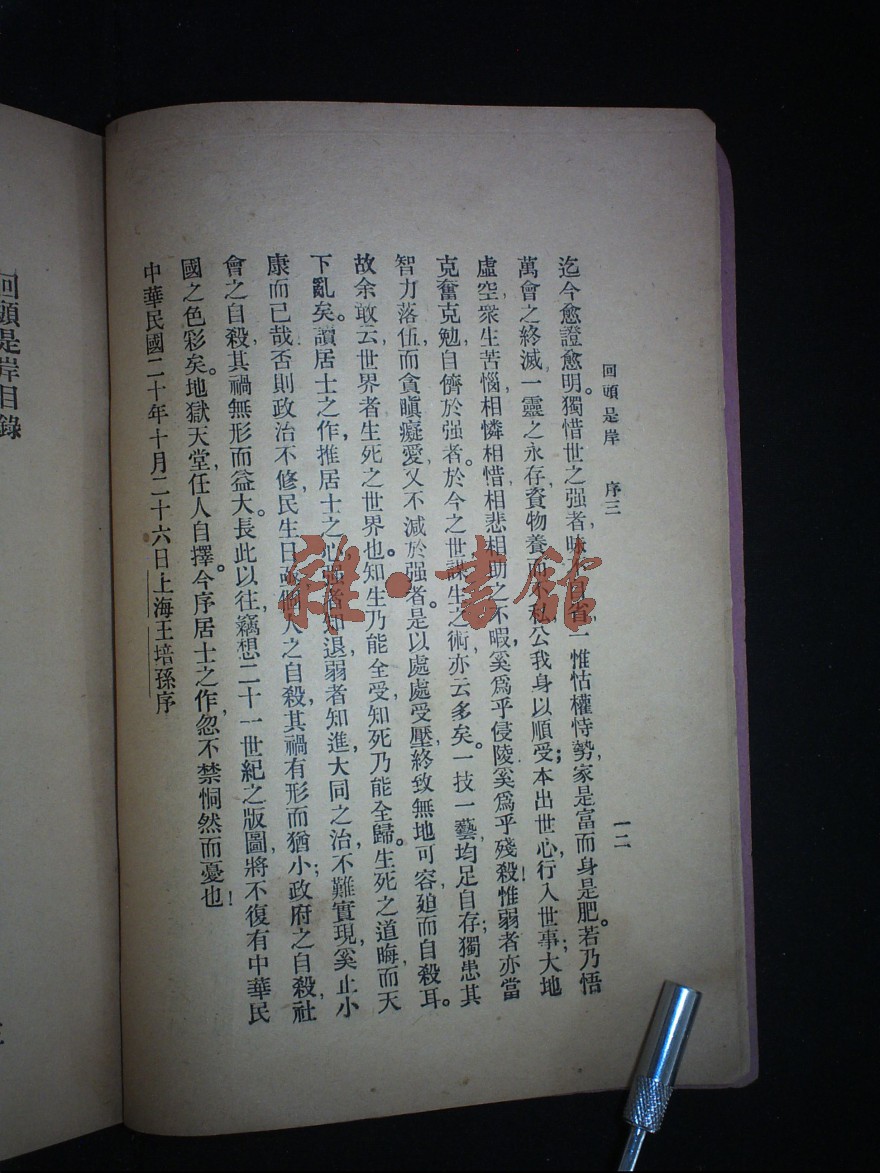 回頭是岸 序三 一二
迄今愈證愈明。獨惜世之强者，昧不自省，一惟怙權恃勢，家是富而身是肥。若乃悟
萬會之終滅，一靈之永存，資物養而不私，公我身以順受；本出世心，行入世事；大地
虛空，衆生苦惱，相憐相惜相悲相助之不暇，奚爲乎侵陵，奚爲乎殘殺！惟弱者亦當
克奮克勉，自儕於强者。於今之世，謀生之術，亦云多矣。一技一藝，均足自存；獨患其
智力落伍，而貪瞋癡愛，又不減於强者。是以處處受壓，終致無地可容，廹而自殺耳。
故余敢云：世界者，生死之世界也。知生乃能全受，知死乃能全歸。生死之道晦，而天
下亂矣。讀居士之作，推居士之心，强者知退，弱者知進，大同之治，不難實現，奚止小
康而已哉。否則政治不修，民生日，個人之自殺，其禍有形而猶小；政府之自殺，社
會之自殺，其禍無形而益大。長此以往，竊想二十一世紀之版圖，將不復有中華民
國之色彩矣。地獄天堂，任人自擇。今序居士之作，忽不禁恫然而憂也！
中華民國二十年十月二十六日上海王培孫序
回頭是岸目錄
雜·書館